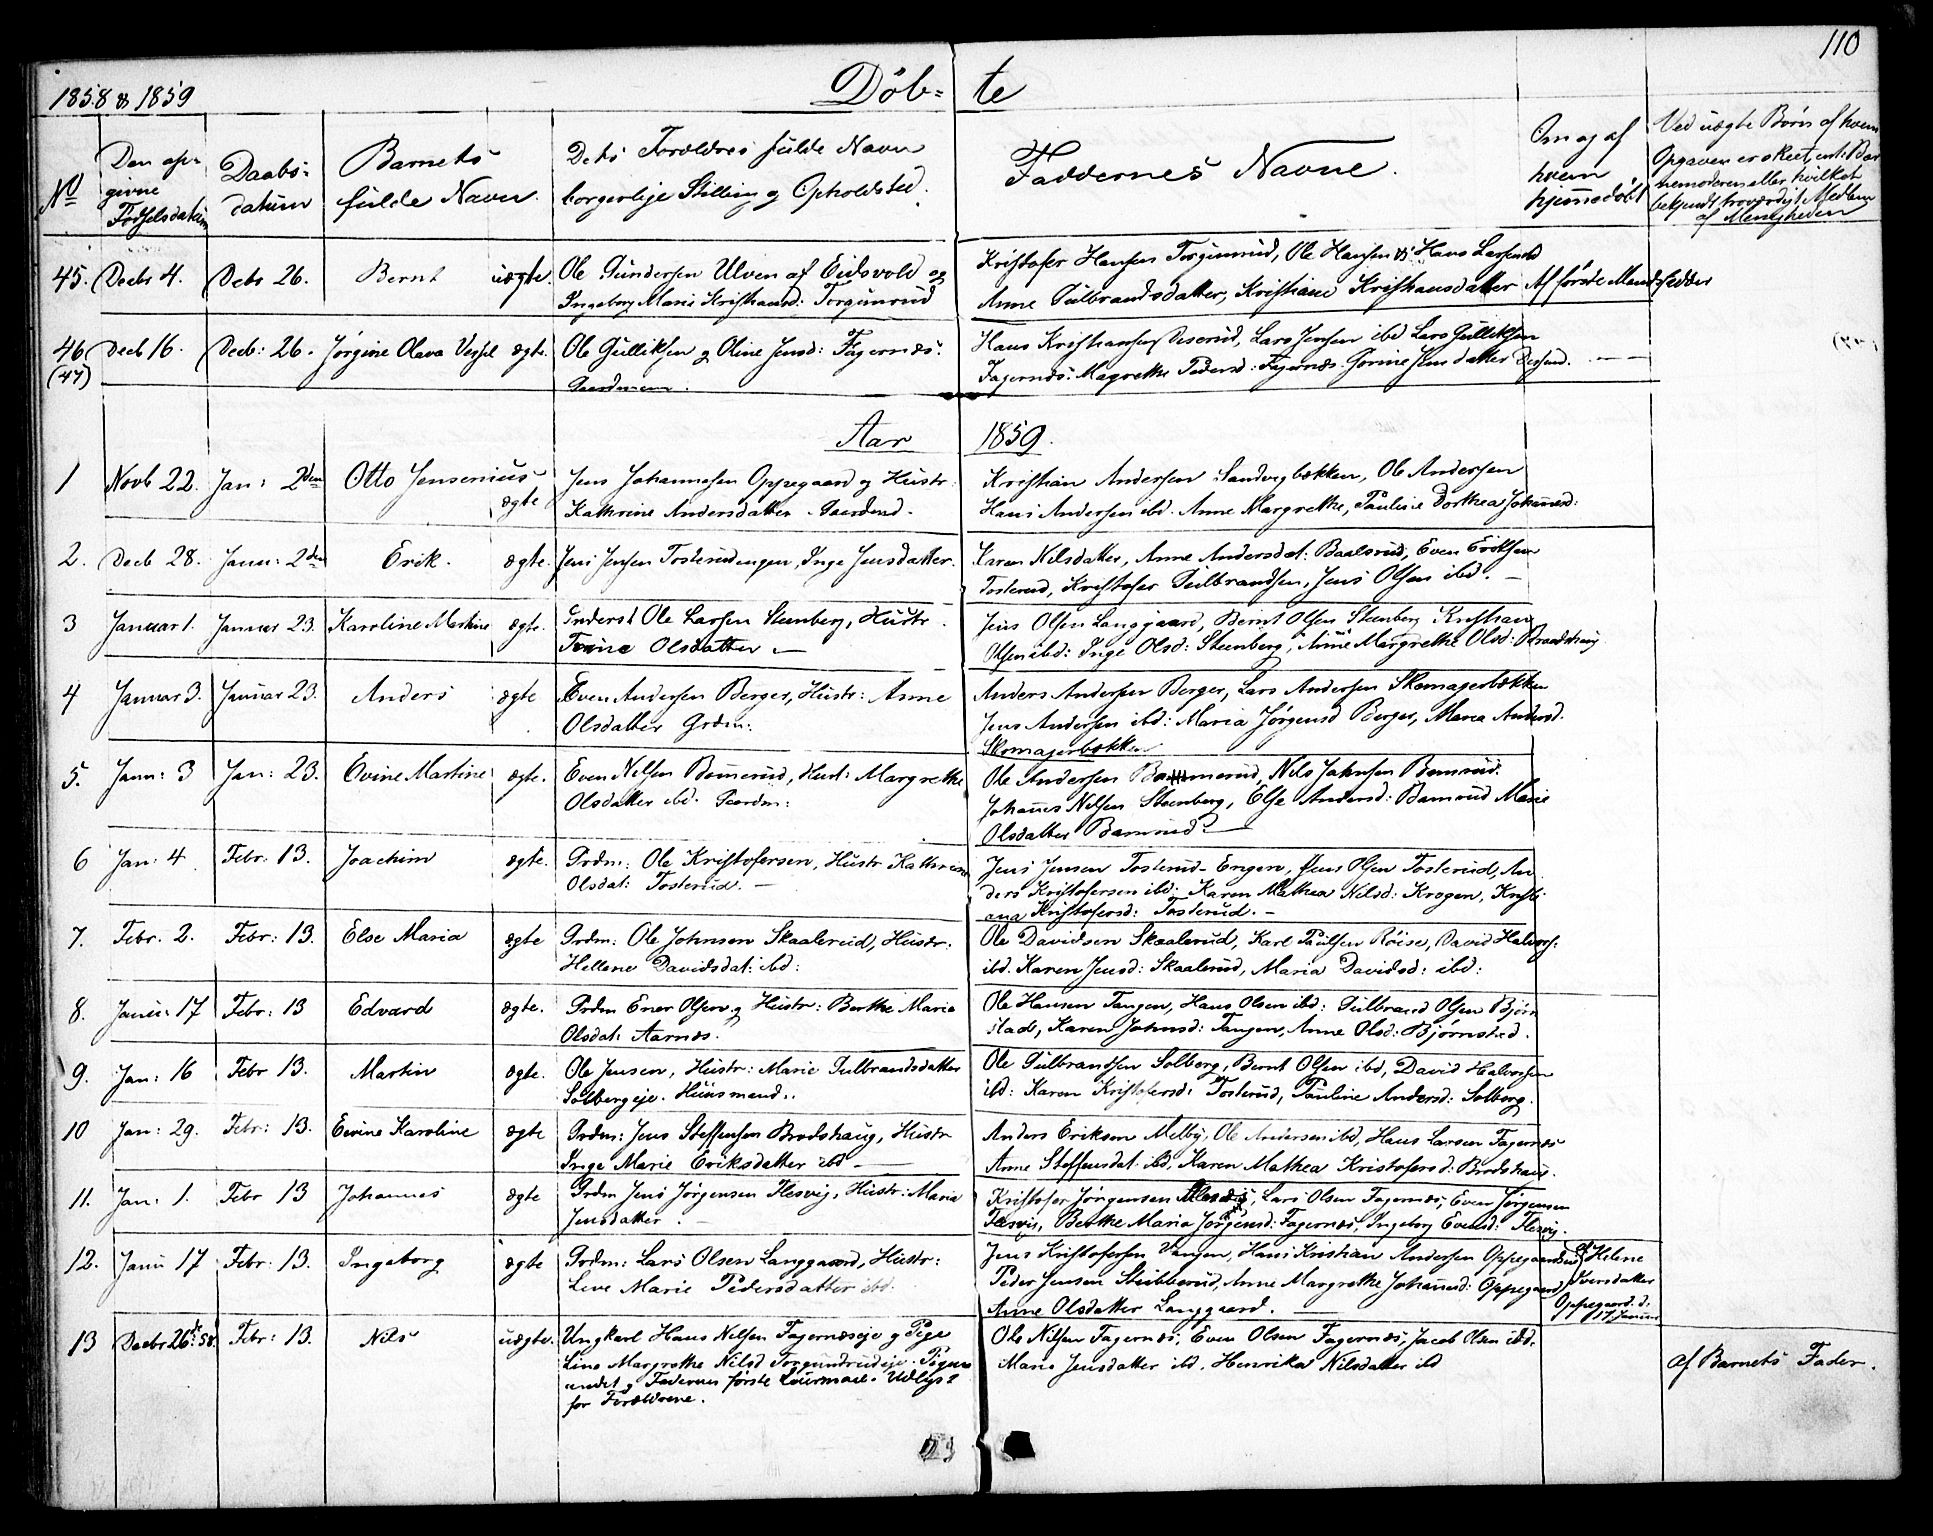 110
1858 & 1859
Döb= te
No
Den op-
givne
Födselsdatum
Daabs-
datum
Barnets
fulde Navn.
Dets Forældres fulde Navn
borgerlige Stilling og Opholdsted.
Faddernes Navne.
Om og af
hvem
hjemmedöbt
Ved uægte Börn af hvem
Opgaven er skeet, ent: Bar
nemoderen eller hvilket
bekjendt troværdigt Medlem
af Menigheden
45. Decbr 4. Decbr 26. Bernt uægte. Ole Gundersen Ulven af Eidsvold og
Ingeborg Marie Kristiansd: Torgunrud
Kristofer Hansen Torgunrud, Ole Hansen & Hans Larsen ibd
Anne Gulbrandsdatter, Kristiane Kristiansdatter Af förste Mands Fader
46 Decb 16. Decb: 26. Jörgine Olava Vessel ægte. Ole Gulliksen og Oline Jensd: Fagernæs.
(47)
Gaardmænd.
Hans Kristiansen Diserud, Lars Jensen ibd Lars Gulliksen
Fagernæs. Magrethe Pedersd: Fagernæs. Gorine Jensdatter
Aar 1859.
1 Novb 22. Jan: 2den Otto Jensenius ægte Jens Johannesen Oppegaard og Hustr:
Kathrine Andersdatter Gaardmd.
Kristian Andersen Sandvigbækken, Ole Andersen
Hans Andersen ibd. Anne Margrethe, Pauline Dorthea Johannesd:
2. Decb 28. Janu: 2den Erik. ægte. Jens Jensen Tosterudengen, Inge Jensdatter.
Karen Nilsdatter, Anne Andersdat: Baalsrud, Even Eriksen
Tosterud, Kristofer Gulbrandsen, Jens Olsen ibd. —
3 Januar 1. Januar 23. Karoline Martine ægte. Inderst Ole Larsen Steenberg, Hustr.
Torine Olsdatter —
Jens Olsen Langgaard, Bernt Olsen Steenberg Kristian
Olsen ibd: Inge Olsd: Steenberg, Anne Margrethe Olsd: Braadshaug
4 Januar 3. Januar 23. Anders ægte Even Andersen Berger, Hustr: Anne
Olsdatter Grdm:
Anders Andersen Berger, Lars Andersen Skomagerbækken
Jens Andersen ibd: Maria Jörgensd Berger, Maria Andersd.
Skomagerbækken
5. Janu: 3 Jan: 23. Evine Martine ægte. Even Nilsen Bamerud, Hust: Margrethe
Olsdatter ibd. Gaardm:
Ole Andersen Bammerud, Nils Johnsen Bamrud.
Johannes Nilsen Steenberg, Else Andersd: Bamrud Marie
Olsdatter Bamrud. —
6 Jan: 4 Febr: 13. Joachim ægte. Grdm: Ole Kristofersen, Hustr Kathrine
Olsdat: Tosterud. —
Jens Jensen Tosterud-Engen, Jens Olsen Tosterud, An
ders Kristofersen ibd: Karen Mathea Nilsd: Krogen, Kristi
ana Kristofersd: Tosterud. —
7. Febr. 2. Febr: 13. Else Maria ægte Grdm: Ole Johnsen Skaalerud, Hustr:
Hellene Davidsdat: ibd:
Ole Davidsen Skaalerud, Karl Paulsen Röise, David Halvors:
ibd. Karen Jensd: Skaalerud, Maria Davidsd: ibd:
8. Janu: 17 Febr: 13 Edvard ægte. Grdm Ener Olsen og Hustr: Berthe Maria
Olsdat: Aarnæs.
Ole Hansen Tangen, Hans Olsen ibd: Gulbrand Olsen Björn
stad, Karen Johnsd: Tangen, Anne Olsd: Björnstad.
9. Jan: 16 Febr 13. Martin ægte. Ole Jensen, Hustr: Marie Gulbrandsdatter
Solbergeje. Huusmand.
Ole Gulbrandsen Solberg, Bernt Olsen ibd, David Halvorsen
ibd: Karen Kristofersd: Tosterud, Pauline Andersd: Solberg.
10 Jan: 29. Febr: 13. Evine Karoline ægte Grdm: Jens Steffensen Brodshaug, Hustr
Inge Marie Eriksdatter ibd —
Anders Eriksen Melby, Ole Andersen ibd, Hans Larsen Fagernæs
Anne Steffensdat. ibd, Karen Mathea Kristofersd: Brodshaug.
11. Jan: 1. Febr 13 Johannes ægte Grdm Jens Jörgensen Flesvig, Hustr: Maria
Jensdatter. —
Kristofer Jörgensen Flesvig, Lars Olsen Fagernæs, Even Jörgensen
Flesvig, Berthe Maria Jörgensd: Fagernæs, Ingeborg Evensd: Flesvig.
12. Janu 17 Febr: 13. Ingeborg ægte Grdm: Lars Olsen Langgaard, Hustr:
Live Marie Pedersdatter ibd.
Jens Kristofersen Vangen, Hans Kristian Andersen Oppegaard
Peder Jensen Stubberud, Anne Margrethe Johannesd: Oppegaard,
Anne Olsdatter Langgaard. —
af Helene
Iversdatter
Oppegaard. d.
17 Januar
13 Decbr 26de 58. Febr: 13. Nils uægte. Ungkarl Hans Nilsen Fagernæseje og Pige
Line Margrethe Nilsd Torgundrudeje. Pigens
andet og Faderens förste Leiermaal. Udlyst
for Forældrene.
Ole Nilsen Fagernæs, Even Olsen Fagernæs, Jacob Olsen ibd.
Maris Jensdatter ibd. Henrika Nilsdatter ibd
af Barnets Fader.